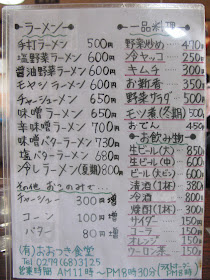 ラーメン
手打ラーメン 500円
塩野菜ラーメン 600円
醤油野菜ラーメン 600円
モヤシラーメン 650円
チャーシューメン 650円
味噌ラーメン 650円
辛味噌ラーメン 700円
味噌バターラーメン 730円
塩バターラーメン 680円
冷しラーメン(夏期) 800円
その他 おこのみで…
チャーシュー 300円増
コーン 100円増
バター 80円増
(有)おおつき食堂
TEL 0279(68)3125
営業時間 AM11時~PM8時30分
一品料理
野菜炒め 420
冷ヤッコ 250
キムチ 300
お新香 350
野菜サラダ 500
モツ煮(冬期) 500
おでん 450
お飲み物
生ビール(大)
生ビール(中)
ビール(大ビン)
清酒(1杯)
冷酒
焼酎(1杯)
サイダー
コーラ
オレンジ
ウーロン茶